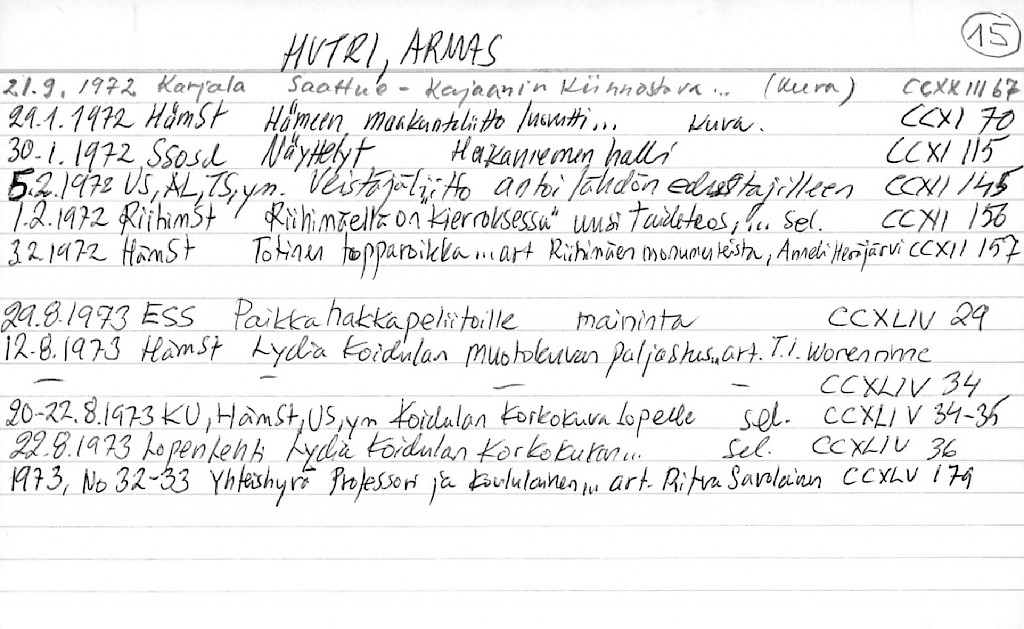 15
HUTRI, ARMAS
21.9.1972 Karjala Saattue - Kajaanin kiinnostava... (kuva) CCXXIII 67
29.1.1972 HämSt Hämeen maakuntaliitto luovutti... kuva. CCXI 70
30.1.1972 Ssosd Näyttelyt Hakaniemen halli CCXI 115
5.2.1972 US, AL, TS, ym. Veistäjäliitto antoi lähdön edustajilleen CCXI 145
1.2.1972 RiihimSt Riihimäellä on "kierroksessa" uusi taideteos,... sel. CCXII 156
3.2.1972 HämSt Totinen topparoikka... art Riihimäen monumenteista, Anneli Heräjärvi CCXII 157
29.8.1973 ESS Paikka hakkapeliitoille maininta CCXLIV 29
12.8.1973 HämSt Lydia Koidulan muotokuvan paljastus... art. T.I.
— — — — CCXLIV 34
20-22.8.1973 KU, HämSt, US, ym Koidulan korkokuva Lopelle sel. CCXLIV 34-35
22.8.1973 Lopen Lehti Lydia Koidulan korkokuvan... sel. CCXLIV 36
1973, No 32-33 Yhteishyvä Professori ja koululainen... art. Ritva Savolainen CCXLV 179